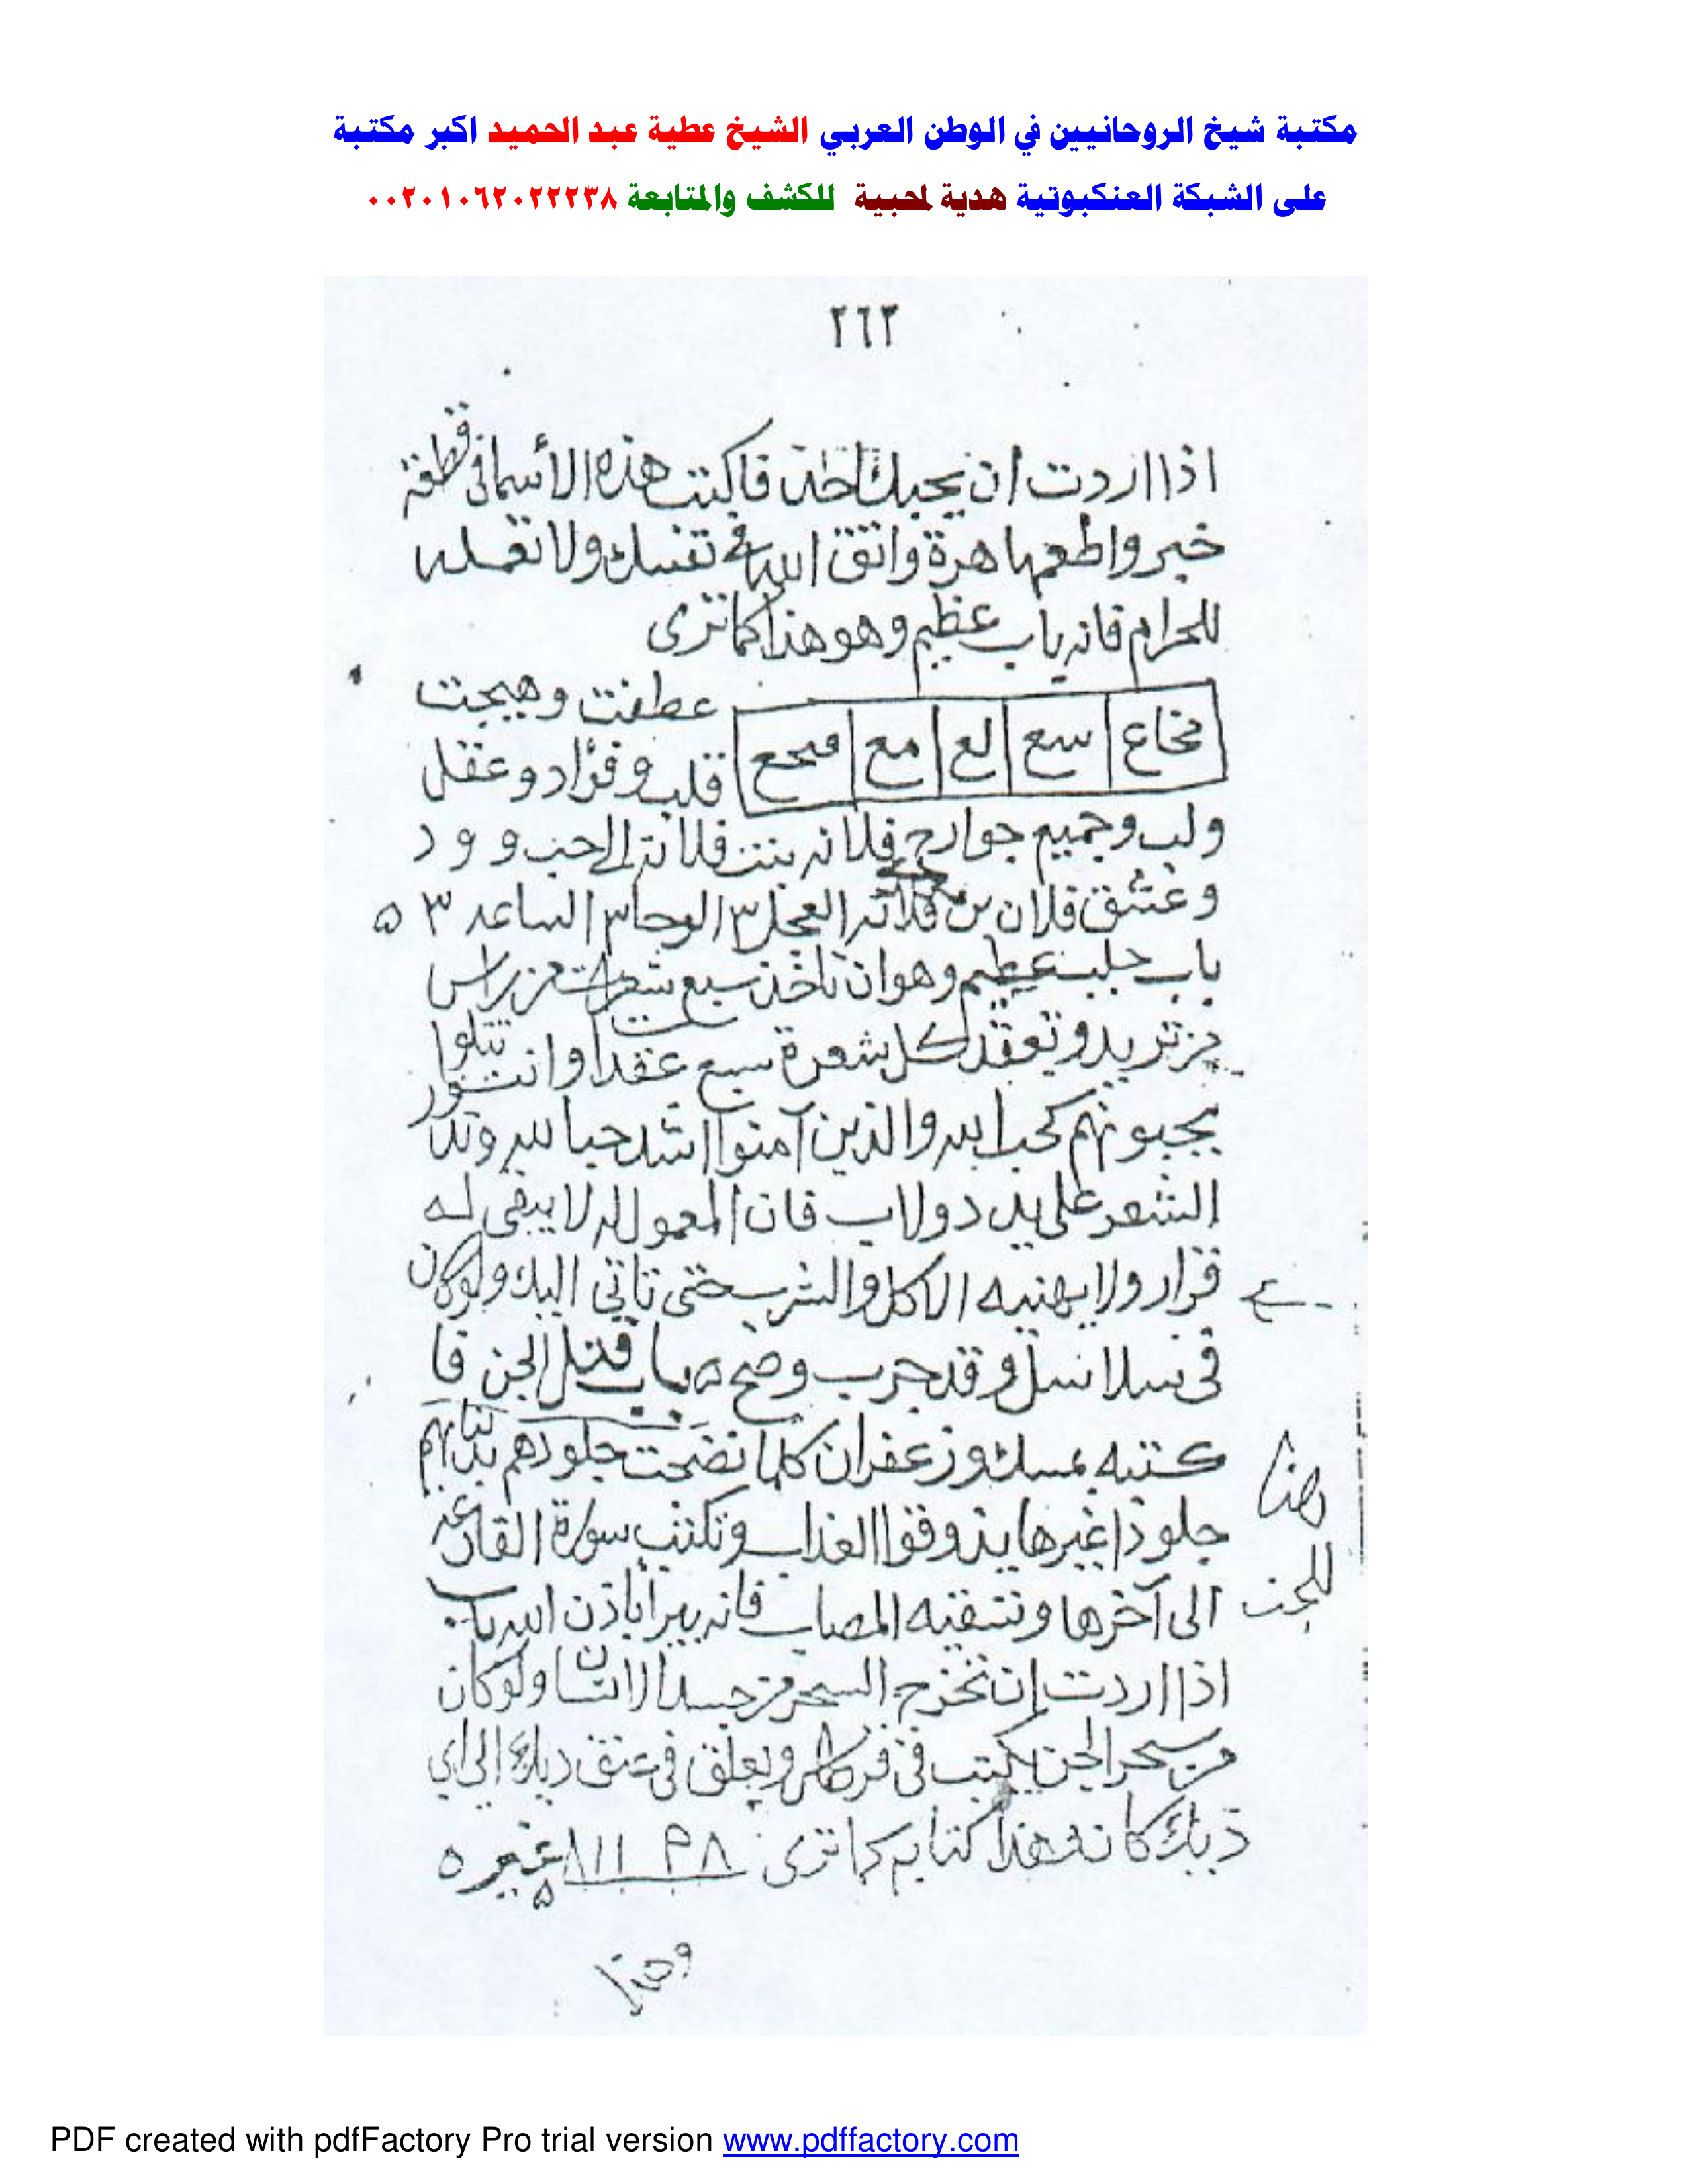 مكتبة شيخ الروحانيين في الوطن العربي الشيخ عطية عبد الحميد اكبر مكتبة
على الشبكة العنكبوتية هدية لمحبية للكشف والمتابعة ٠٠٢٠١٠٦٢٠٢٢٢٣٨
٢٦٢
اذا اردت ان يحبك احد فاكتب هذه الأسما فى قطعة
خبز واطعمها هرة واتقى الله فى نفسك ولا تعمله
للحرام فانه باب عظيم وهو هذا كما ترى
سع لع مع عطفت وهيجت
قلب وفؤاد وعقل
ولب وجميع جوارح فلانه بنت فلانة الى حب وود
وعشق فلان بن فلانه العجل ٣ الوحا ٣ الساعه ٣ ٥
باب جلب عظيم وهو ان تاخذ سبع شعرات من راس
من تريد وتعقد كل شعرة سبع عقد وانت تتلوا
يحبونهم كحب الله والذين آمنوا اشد حبا لله وتد
الشعر على يد دولاب فان المعمول له لا يبقى له
قرار ولا يهنيه الاكل والشرب حتى تاتى اليك ولو كان
فى سلاسل وقد جرب وصح ٥ باب قتل الجن فا
كتبه بمسك وزعفران كلما نضجت جلودهم بدلناهم
جلودا غيرها يذوقوا العذاب وتكتب سورة القارعه
الى آخرها وتسقيه المصاب فانه يبرأ باذن الله باب
اذا اردت ان تخرج السحر من جسد الانسان ولو كان
من سحر الجن يكتب فى قرطاس ويعلق فى عنق ديك الى اي
ديك كانه هذا كتابه كما ترى
هذا
للجن
وهذا
PDF created with pdfFactory Pro trial version www.pdffactory.com